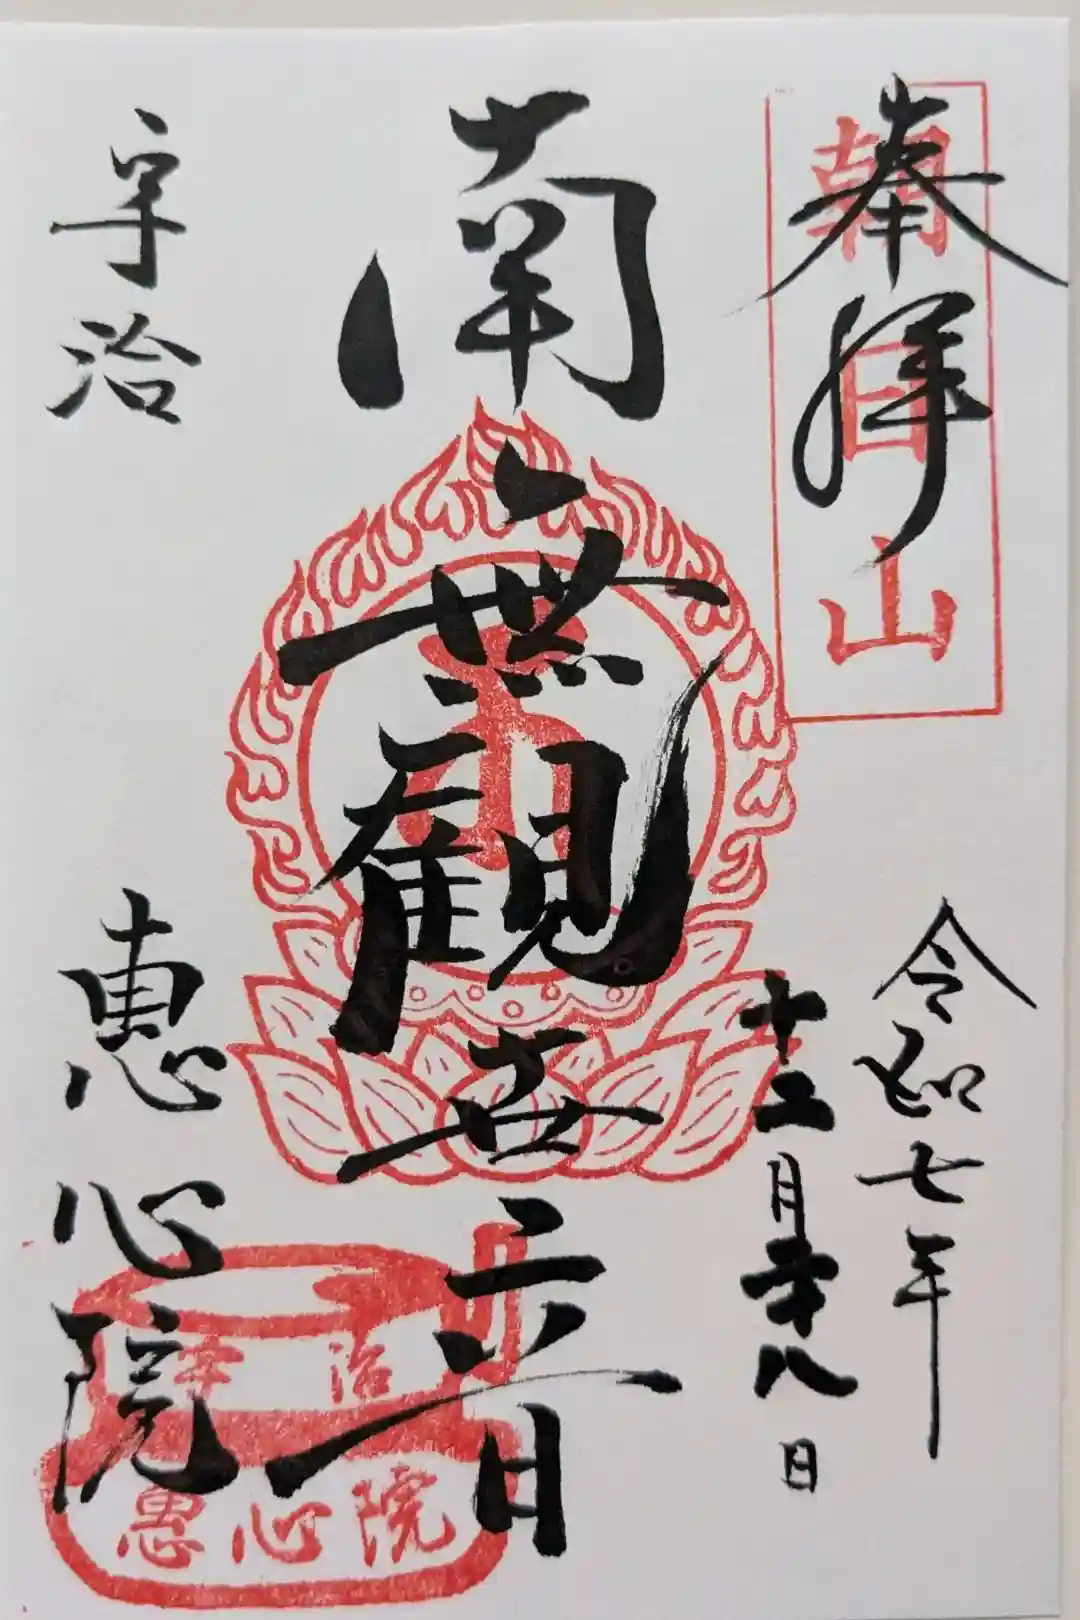 奉拝
朝日山
令和七年
十二月廿八日
南無観世音
宇治
恵心院
宇治
恵心院